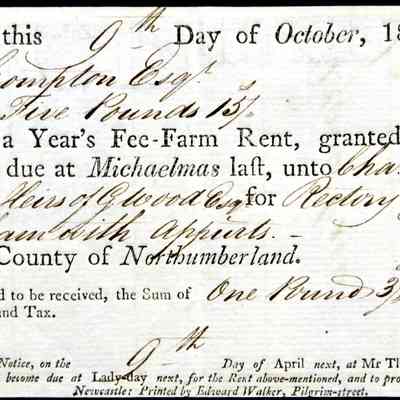 this 9th Day of October, 18
ompton Esqr.
Five Pounds 15/
a Year's Fee-Farm Rent, granted
due at Michaelmas last, unto Cha
Heirs of G Wood Esq for Rectory
with Appurts. -
County of Northumberland.
d to be received, the Sum of One Pound 3/
and Tax.
Notice, on the 9th Day of April next, at Mr Th
become due at Lady-day next, for the Rent above-mentioned, and to pro
Newcastle: Printed by Edward Walker, Pilgrim-street.